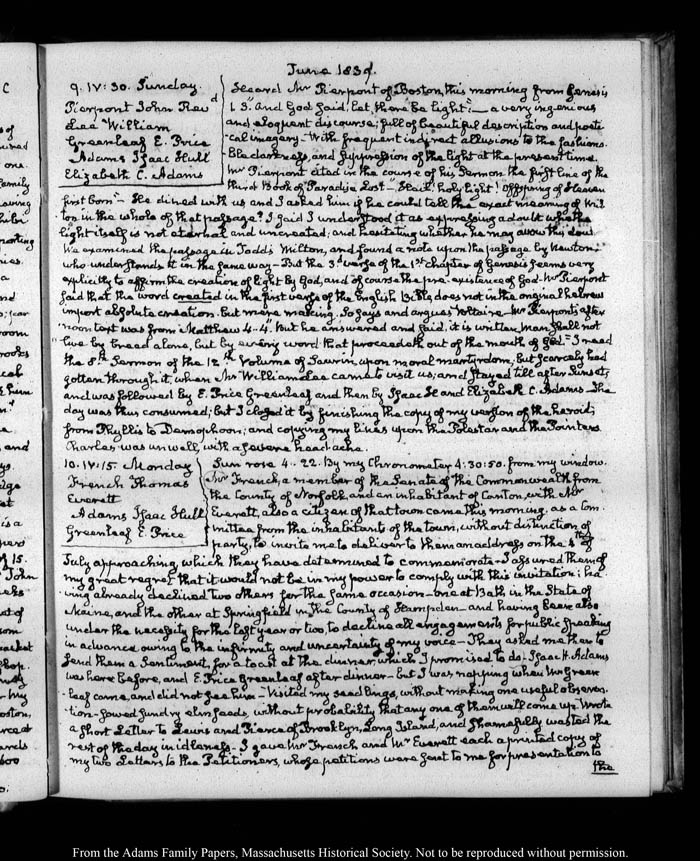 June 1839.
9. IV: 30. Sunday.
Pierpont John Revd
Lee William
Greenleaf E. Price
Adams Isaac Hull
Elizabeth C. Adams
Heard Mr Pierpont of Boston, this morning from Genesis
1. 3. "And God said, let there be light": — a very ingenious
and eloquent discourse; full of beautiful description and poeti-
-cal imagery — With frequent indirect allusions to the fashiona-
-ble darkness, and suppression of the light at the present time.
Mr Pierpont cited in the course of his Sermon the first line of the
third Book of Paradise Lost — "Hail! holy light! Offspring of Heaven
first born" — He dined with us and I asked him if he could tell the exact meaning of Mil-
ton in the whole of that passage? I said I understood it as expressing a doubt whether
light itself is not eternal and uncreated; and hesitating whether he may avow this doubt.
We examined the passage in Todd's Milton, and found a note upon the passage by Newton
who understands it in the same way — But the 3d verse of the 1st chapter of Genesis seems very
explicitly to affirm the creation of light by God, and of course the pre-existence of God — Mr Pierpont
said that the word created in the first verse of the English Bible, does not in the original hebrew
import absolute creation. but mere making. So says and argues Voltaire — Mr Pierpont's after
noon text was from Matthew 4-4. But he answered and said, it is written, Man shall not
"live by bread alone, but by every word that proceedeth out of the mouth of God." — I read
the 8th Sermon of the 12th Volume of Saurin, upon moral martyrdom; but scarcely had
gotten through it, when Mr William Lee came to visit us; and stayed till after Sunset;
and was followed by E. Price Greenleaf and then by Isaac H. and Elizabeth C. Adams. The
day was thus consumed; but I closed it by finishing the copy of my version of the heroid;
from Phyllis to Demophoon; and copying my lines upon the Polestar and the Pointers
Charles was unwell, with a severe head ache.
10. IV:15. Monday
French Thomas
Everett
Adams Isaac Hull
Greenleaf E. Price
Sun rose 4. 22. By my Chronometer 4:30:50. from my window.
Mr French, a member of the Senate of the Commonwealth from
the County of Norfolk, and an inhabitant of Canton, with Mr
Everett, also a citizen of that town came this morning, as a Com-
mittee from the inhabitants of the town, without distinction of
party, to invite me to deliver to them an address on the 4th of
July approaching, which they have determined to commemorate — I assured them of
my great regret that it would not be in my power to comply with this invitation: ha-
ving already declined two others for the same occasion — one at Bath in the State of
Maine, and the other at Springfield in the County of Hampden — and having been also
under the necessity for the last year or two, to decline all engagements for public speaking
in advance owing to the infirmity and uncertainty of my voice — They asked me then to
send them a Sentiment, for a toast at the dinner, which I promised to do — Isaac H. Adams
was here before, and E. Price Greenleaf after dinner — but I was napping when Mr Green
-leaf came, and did not see him — Visited my seedlings, without making one useful observa-
-tion — sowed sundry elm seeds, without probability that any one of them will come up. Wrote
a short Letter to Lewis and Pierce of Brooklyn, Long Island, and shamefully wasted the
rest of the day in idleness — I gave Mr French and Mr Everett each a printed copy of
my two Letters to the Petitioners, whose petitions were sent to me for presentation to
the
From the Adams Family Papers, Massachusetts Historical Society. Not to be reproduced without permission.